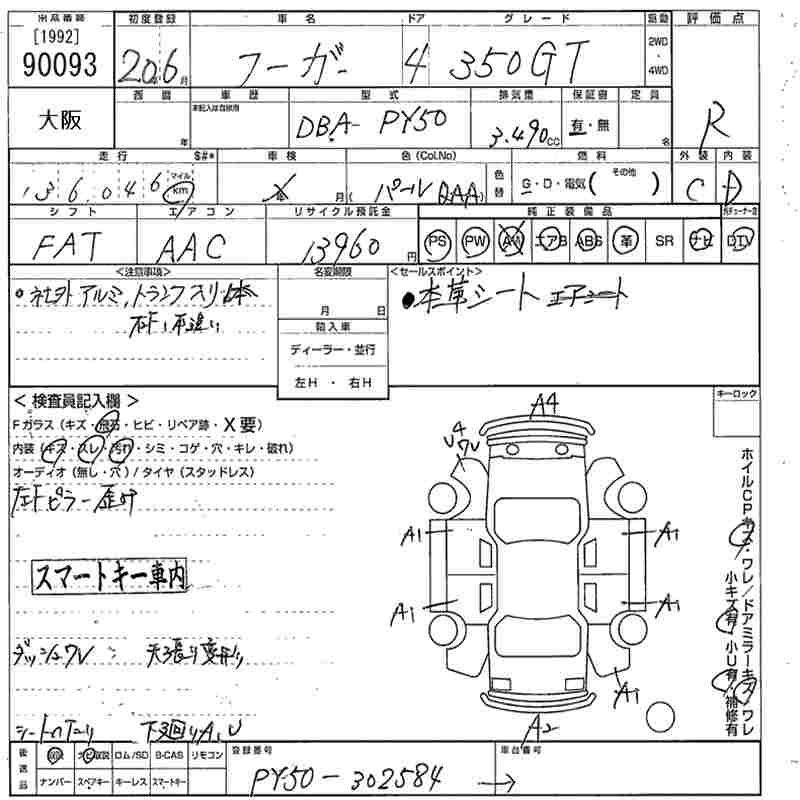 出品番号 初度登録 車名 ドア グレード 駆動 評価点
[1992]
90093 20年6月 フーガ 4 350GT 2WD・4WD R
大阪 西暦 年 車歴 未記入は自家用 型式 排気量 保証書 定員
DBA- PY50 3.490cc 有・無 名
走行 $#* 車検 色(Col.No) 色替 燃料 外装 内装
136.046 マイル km 月 パール QAA G・D・電気( その他 ) C D
シフト エアコン リサイクル預託金 純正装備品
FAT AAC 13960円 PS PW AW エアB ABS 革 SR ナビ DTV
<注意事項> 名変期限 <セールスポイント>
・社外アルミ,トランクスリ 月 日 ●本革シート エアシート
輸入車
ディーラー・並行
左H・右H
<検査員記入欄> キーロック
Fガラス(キズ・飛石・ヒビ・リペア跡・X要) A4
内装(キズ・スレ・汚れ・シミ・コゲ・穴・キレ・破れ) U4 ワレ
オーディオ(無し・穴)/タイヤ(スタッドレス)
左Fピラー歪み
A1 A1
スマートキー車内
A1 A1
ダッシュワレ 天張り変形
A1
シートヘタリ 下廻りA,U A2
ホイルCPキズ・ワレ/ドアミラーキズ・ワレ
小キズ有・小U有・補修有
後送品 取説 ナビ取説 ロム/SD B-CAS リモコン 登録番号 車台番号
ナンバー スペアキー キーレス スマートキー PY50-302584 →